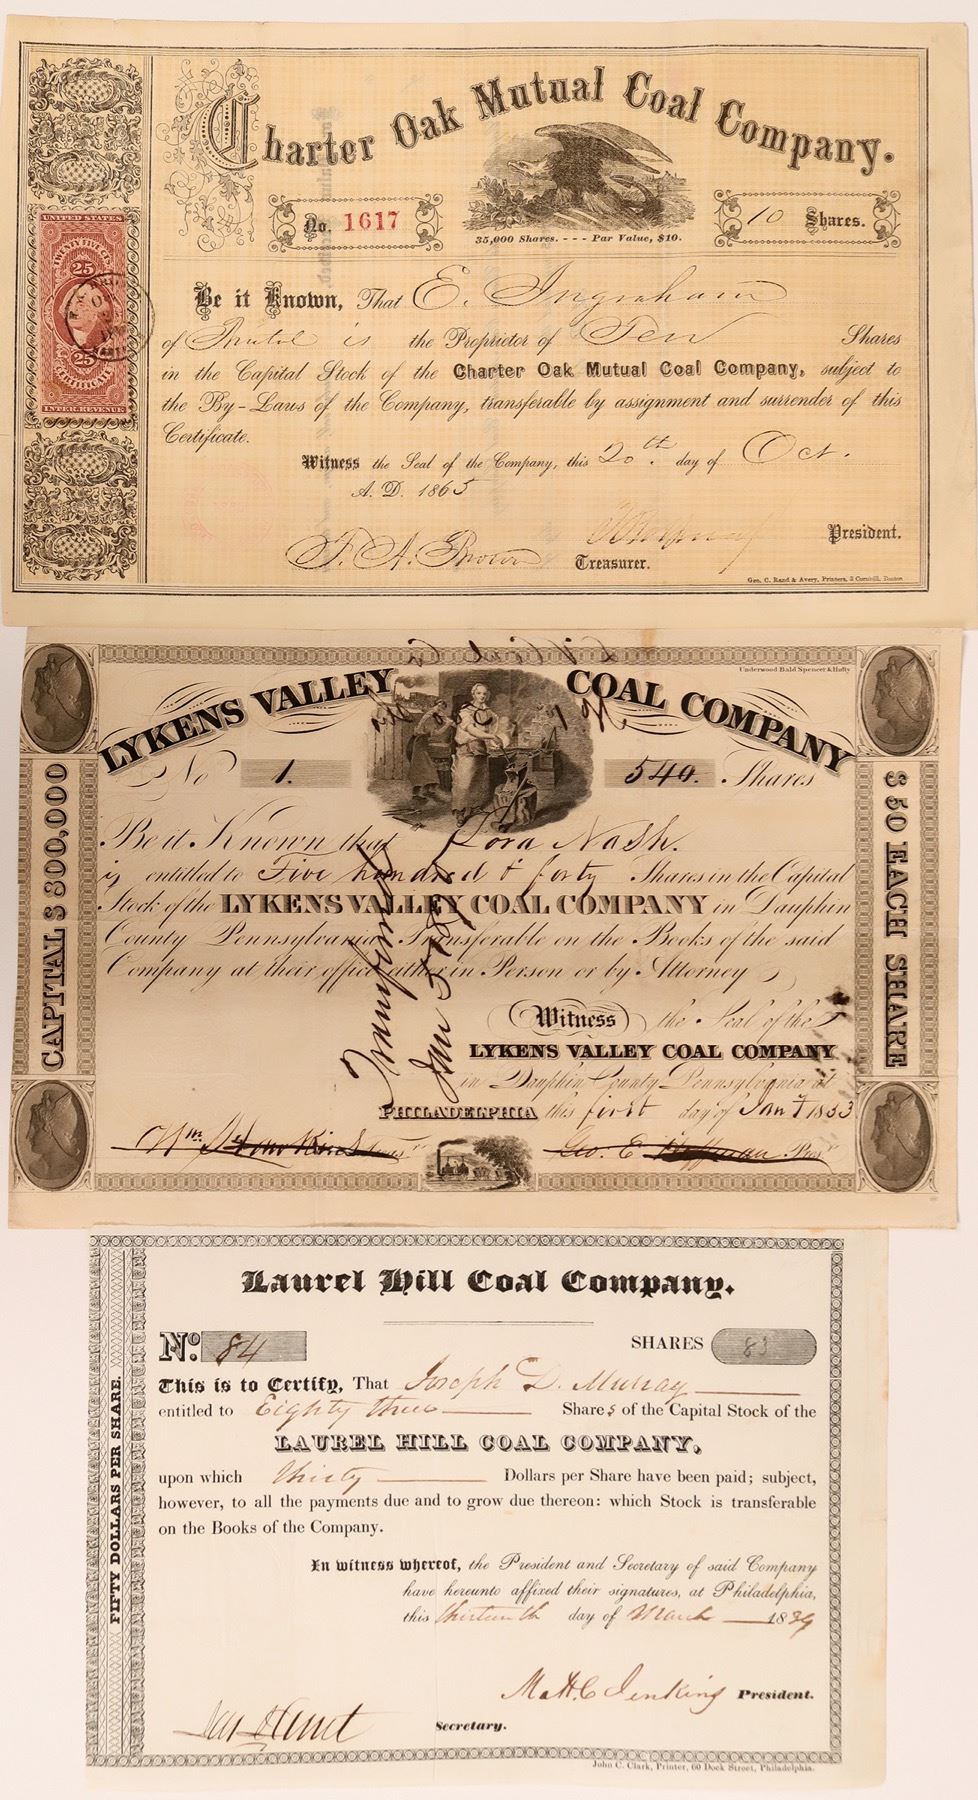 Charter Oak Mutual Coal Company.
No. 1617
35,000 Shares. - - - Par Value, $10.
10 Shares.
UNITED STATES
TWENTY FIVE CENTS
25
25
CERTIFICATE
INTER. REVENUE
Be it Known, That E. Ingraham
of Bristol is the Proprietor of Ten Shares
in the Capital Stock of the Charter Oak Mutual Coal Company, subject to
the By-Laws of the Company, transferable by assignment and surrender of this
Certificate.
Witness the Seal of the Company, this 20th. day of Oct.
A.D. 1865
President.
F. A. Brown Treasurer.
Geo. C. Rand & Avery, Printers, 3 Cornhill, Boston
Underwood Bald Spencer & Hufty
LYKENS VALLEY COAL COMPANY
No 1. 540. Shares
CAPITAL $300,000
$50 EACH SHARE
Be it Known that Lora Nash.
is entitled to Five hundred & forty Shares in the Capital
Stock of the LYKENS VALLEY COAL COMPANY in Dauphin
County Pennsylvania Transferable on the Books of the said
Company at their office either in Person or by Attorney
Transferred
Jan
Witness the Seal of the
LYKENS VALLEY COAL COMPANY
in Dauphin County Pennsylvania at
PHILADELPHIA this first day of Jany 1833
Wm.
Geo. E. Hoffman Prest
Laurel Hill Coal Company.
No. 84
SHARES 83
FIFTY DOLLARS PER SHARE.
This is to Certify, That Joseph D. Murray
entitled to Eighty three Shares of the Capital Stock of the
LAUREL HILL COAL COMPANY,
upon which thirty Dollars per Share have been paid; subject,
however, to all the payments due and to grow due thereon: which Stock is transferable
on the Books of the Company.
In witness whereof, the President and Secretary of said Company
have hereunto affixed their signatures, at Philadelphia,
this thirteenth day of March 1839
Matt. C Jenkins President.
Secretary.
John C. Clark, Printer, 60 Dock Street, Philadelphia.